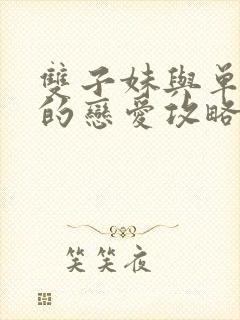 雙子妹與單
的戀愛攻略
笑笑夜